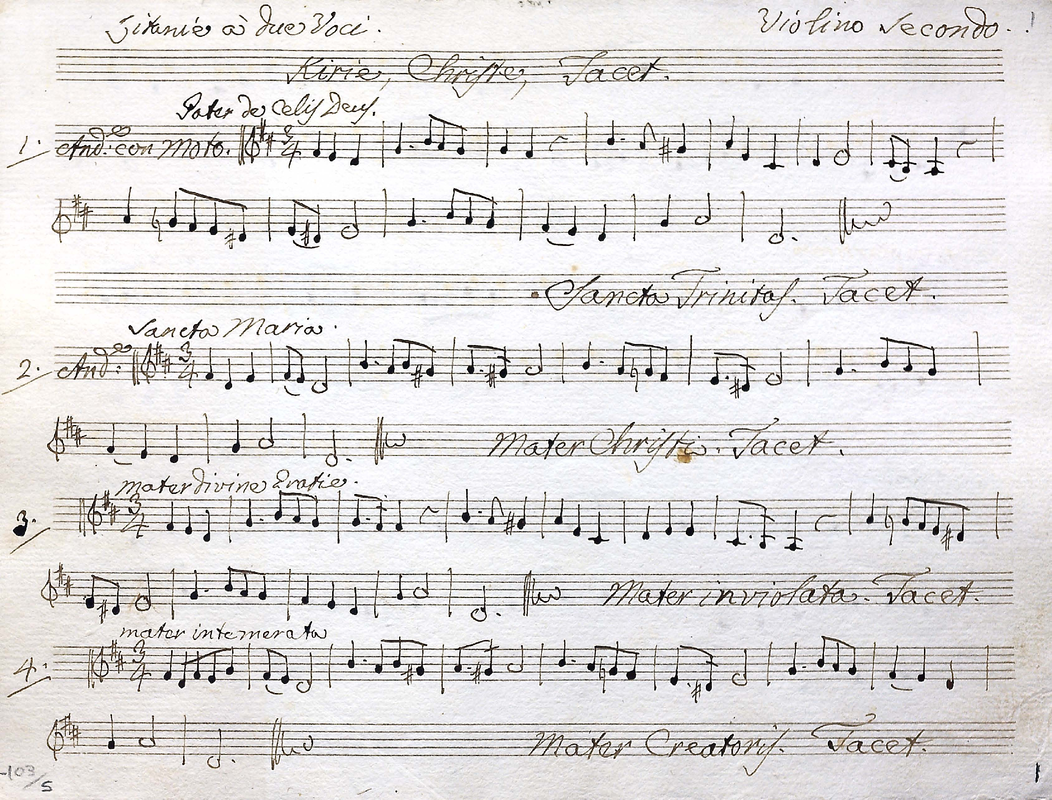 Litanie à due Voci. Violino Secondo. 1
Kirie, Christe, Tacet.
Pater de Celis Deus.
1. And:te con Moto. 3/4
Sancta Trinitas. Tacet.
Sancta Maria.
2. And:te 3/4
Mater Christi. Tacet.
mater divine Gratie.
3. 3/4
Mater inviolata. Tacet.
mater intemerata
4. 3/4
Mater Creatoris. Tacet.
-103/5